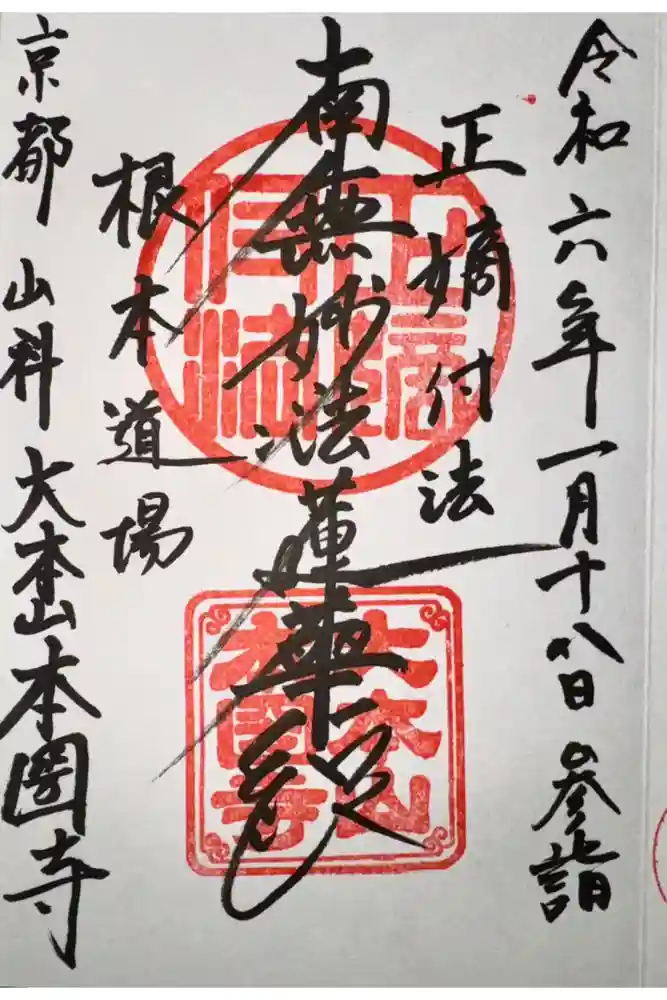 令和六年一月十八日 参詣
正嫡付法
南無妙法蓮華経
根本道場
京都 山科 大本山本圀寺
正嫡
付法
大本山